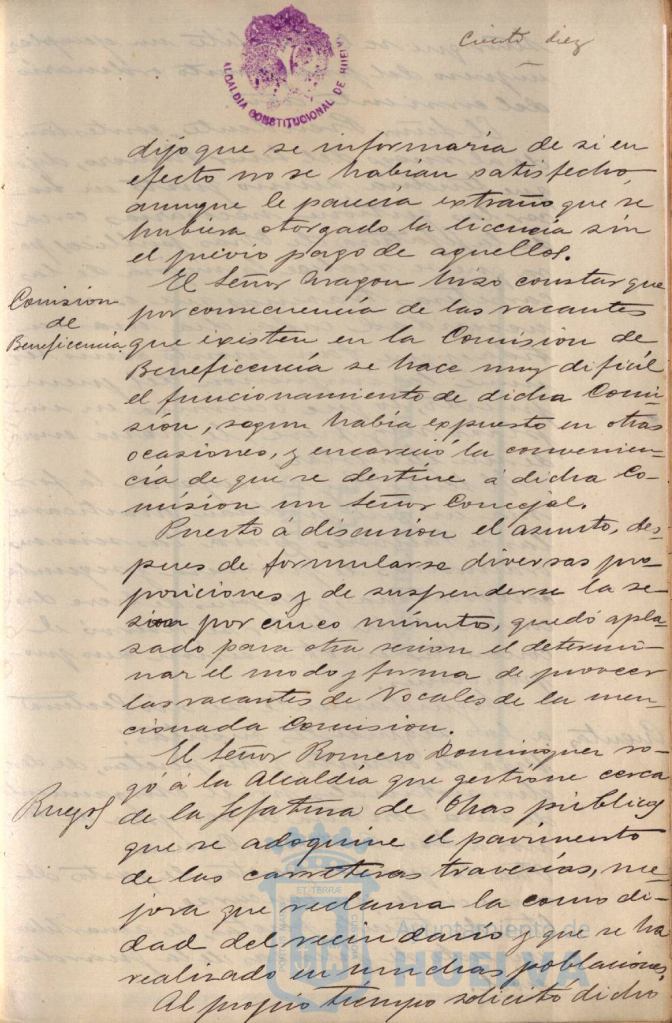 Ciento diez
ALCALDIA CONSTITUCIONAL DE HUELVA
dijo que se informaria de si en
efecto no se habian satisfecho
aunque le parecia extraño que se
hubiera otorgado la licencia sin
el previo pago de aquellos.
Comision
de
Beneficencia.
El Señor Aragon hizo constar que
por consecuencia de las vacantes
que existen en la Comision de
Beneficencia se hace muy dificil
el funcionamiento de dicha Comi-
sión, segun había expuesto en otras
ocasiones, y encareció la convenien-
cia de que se destine á dicha Co-
mision un Señor Concejal.
Puesto á discusion el asunto, des-
pues de formularse diversas pro-
posiciones y de suspenderse la se-
sion por cinco minutos, quedó apla-
sado para otra sesion el determi-
nar el modo y forma de proveer
las vacantes de Vocales de la men-
cionada Comision.
Ruegos
El Señor Romero Dominguez ro-
gó á la Alcaldía que gestione cerca
de la Jefatura de Obras públicas
que se adoquine el pavimento
de las carreteras travesías, me-
jora que reclama la comodi-
dad del vecindario y que se ha
realizado en muchas poblaciones.
Al propio tiempo solicitó dicho
ET TERRÆ
Ayuntamiento de
HUELVA